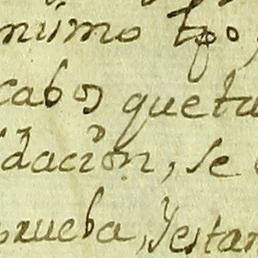 mismo tpo,
cabos que tu
dacion, se
prueba, Jestan